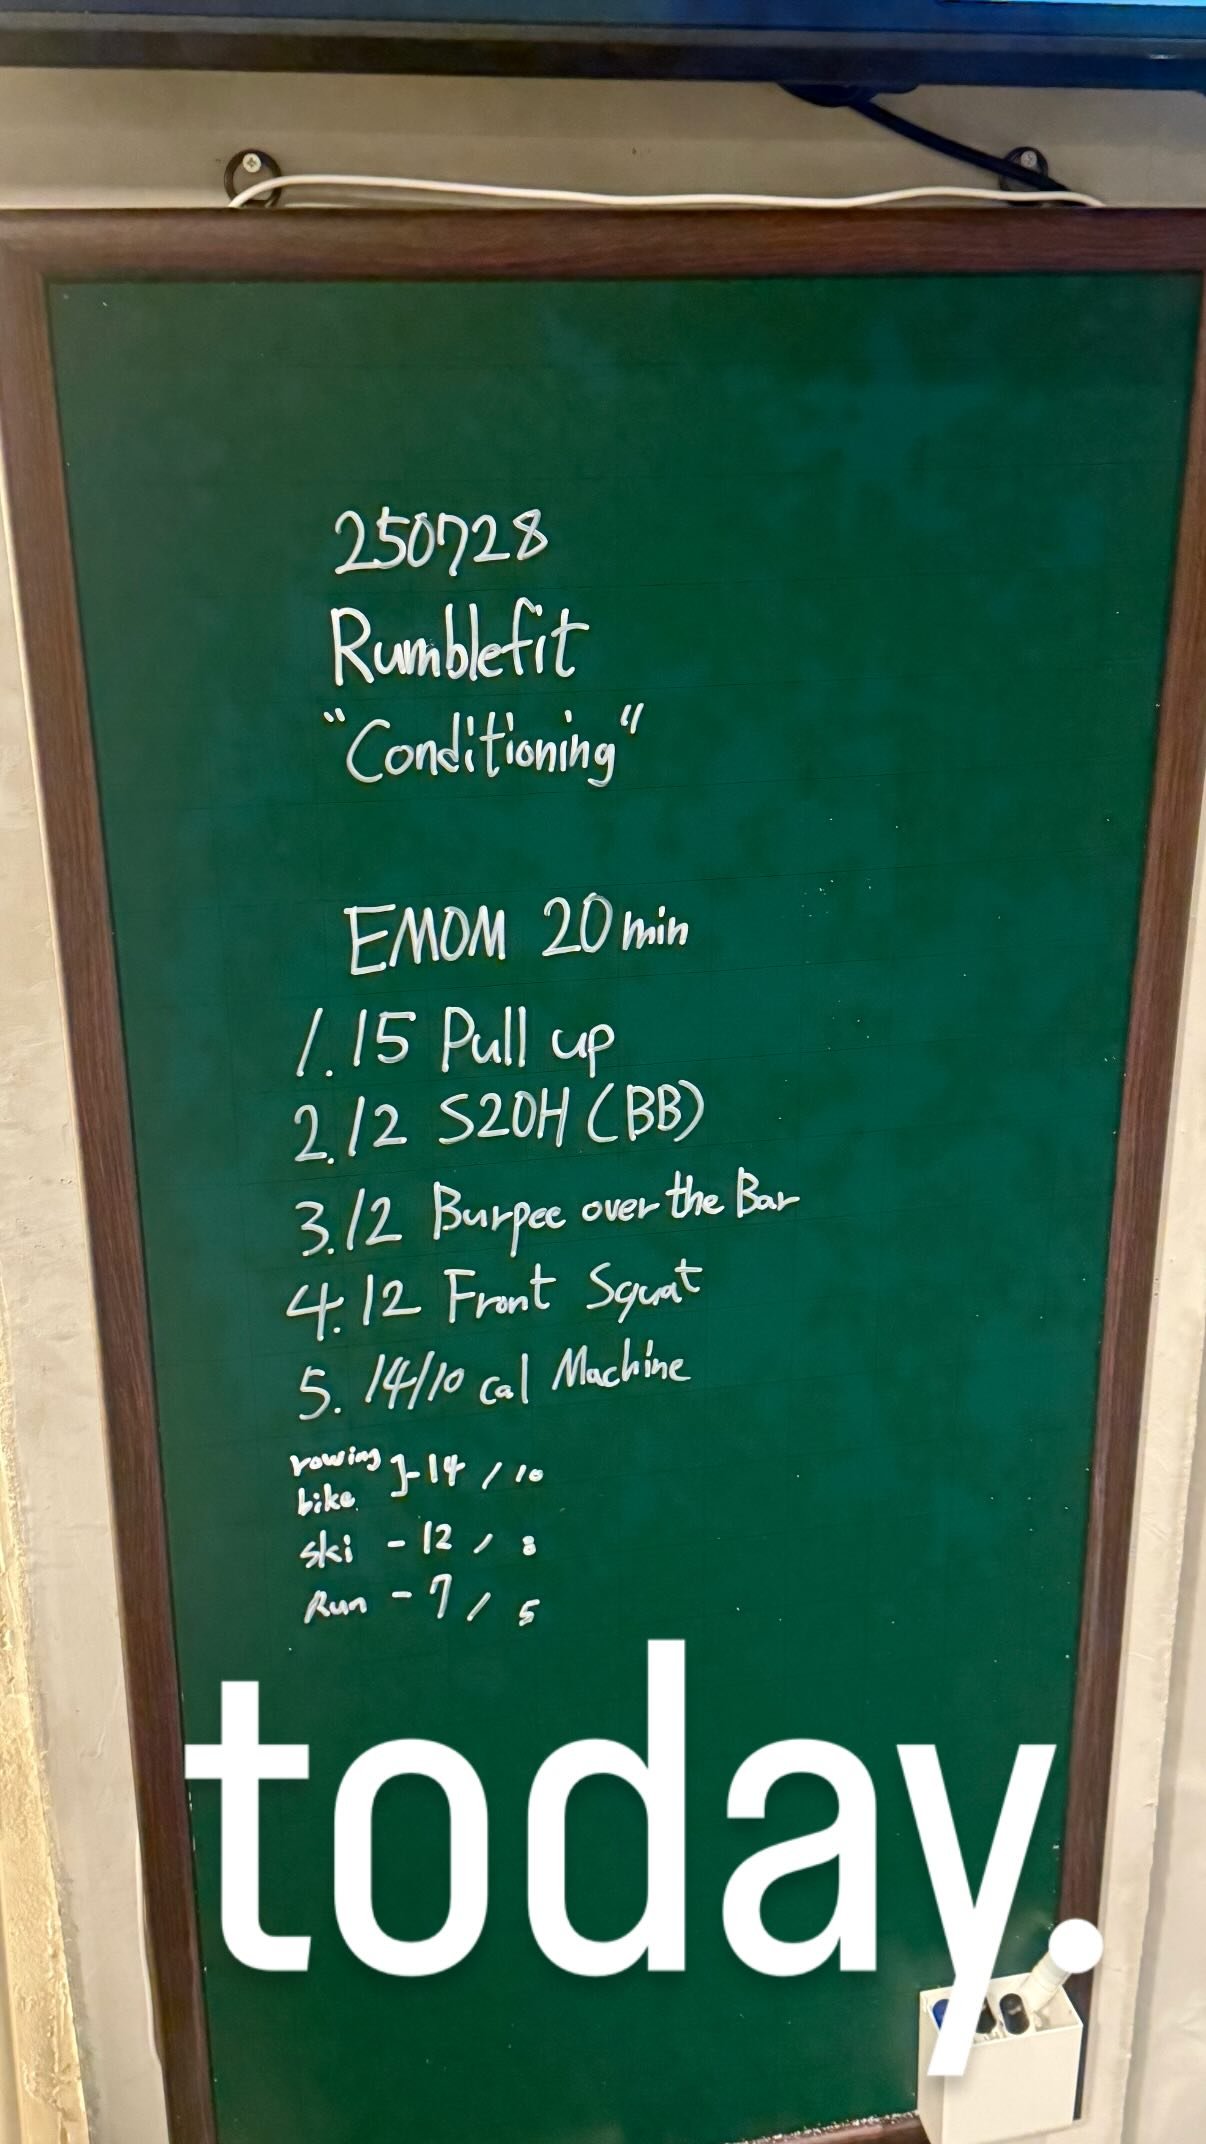 250728
Rumblefit
"Conditioning"
EMOM 20 min
1. 15 Pull up
2. 12 S2OH (BB)
3. 12 Burpee over the Bar
4. 12 Front Squat
5. 14/10 cal Machine
rowing
bike }-14 / 10
ski - 12 / 8
Run - 7 / 5
today.